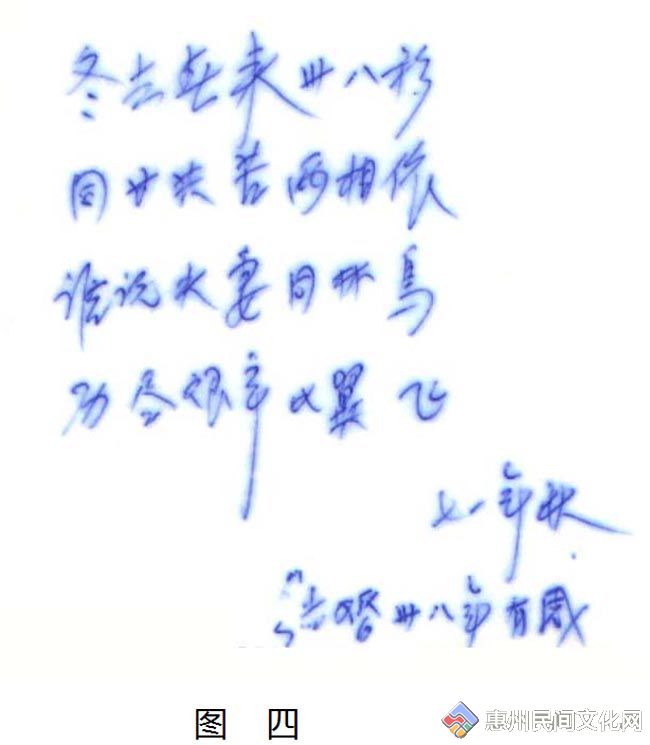 冬去春来卅八衫
同甘共苦两相依
谁说夫妻同林鸟
历尽艰辛比翼飞
七一年秋
结婚卅八年有感
图 四
惠州民间文化网